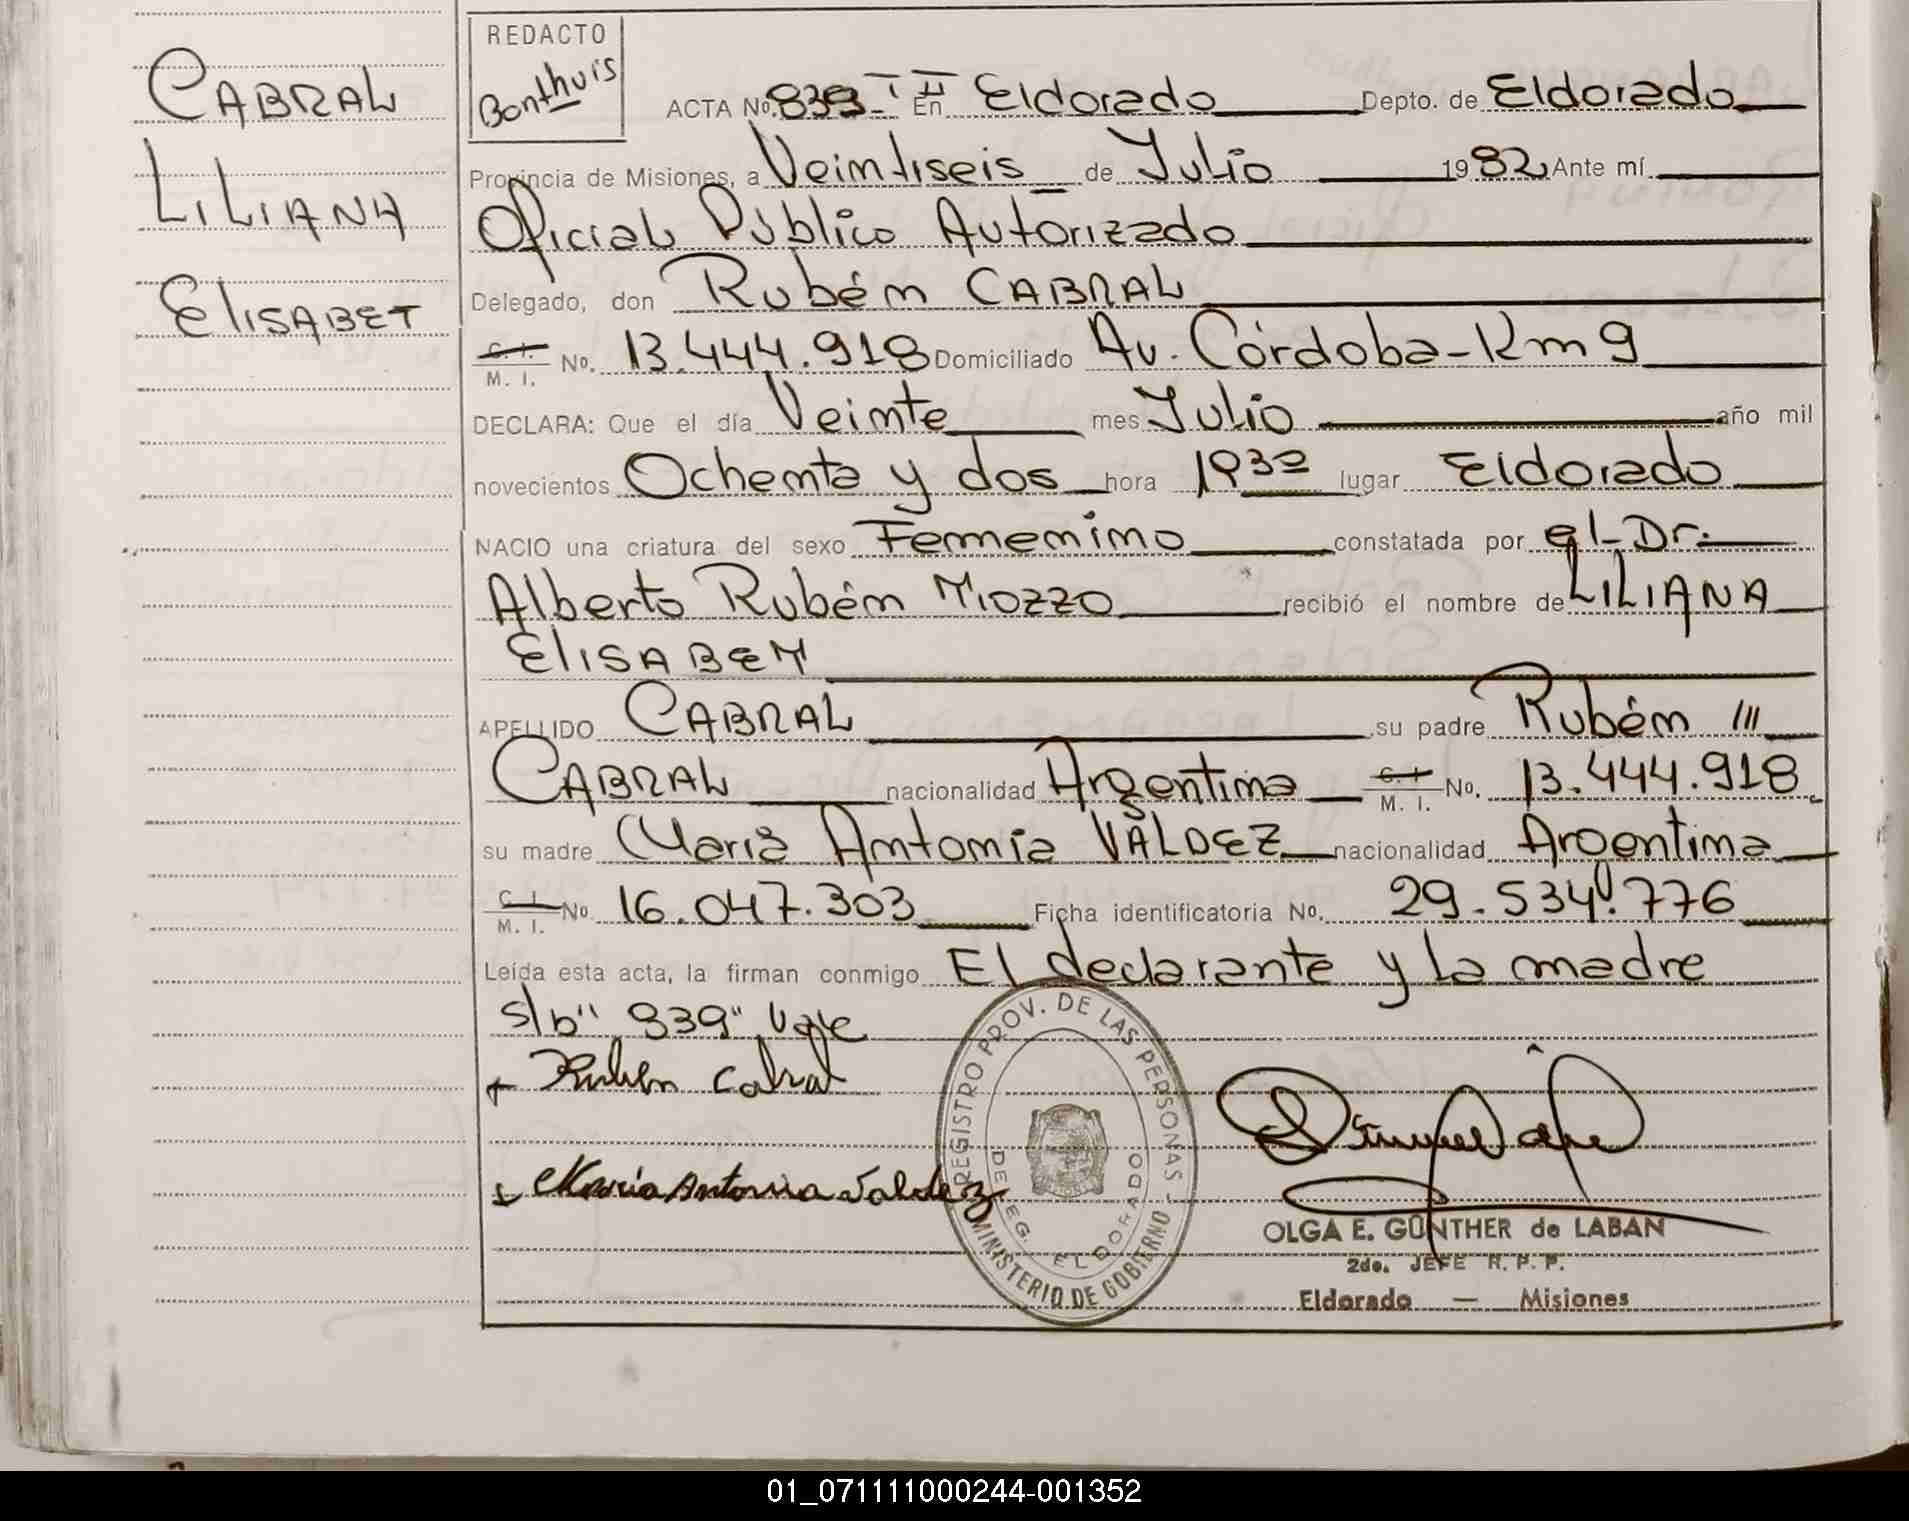 CABRAL
LILIANA
ElISABET
REDACTO
Bonthuis
ACTA No. 839 - T II En Eldorado Depto. de Eldorado
Provincia de Misiones, a Veintiseis de Julio 1982 Ante mí
Oficial Público Autorizado
Delegado, don Rubén CABRAL
C. I. M. I. No. 13.444.918 Domiciliado Av. Córdoba-Km 9
DECLARA: Que el día Veinte mes Julio año mil
novecientos Ochenta y dos hora 1930 lugar Eldorado
NACIO una criatura del sexo Femenino constatada por el Dr.
Alberto Rubén MIOZZO recibió el nombre de LILIANA
ElISABET
APELLIDO CABRAL su padre Rubén ///
CABRAL nacionalidad Argentina C. I. M. I. No. 13.444.918
su madre María Antonia VALDEZ nacionalidad Argentina
C. I. M. I. No 16.047.303 Ficha identificatoria No. 29.534.776
Leída esta acta, la firman conmigo El declarante y la madre
S/b" 839" Vale
Rubén Cabral
María Antonia Valdez
REGISTRO PROV. DE LAS PERSONAS - MINISTERIO DE GOBIERNO
DELEG. ELDORADO
OLGA E. GÜNTHER de LABAN
2do. JEFE R. P. P.
Eldorado — Misiones
01_071111000244-001352